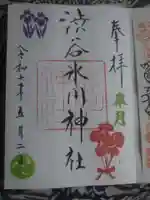 奉拝
皐月
渋谷氷川神社
令和七年五月二日